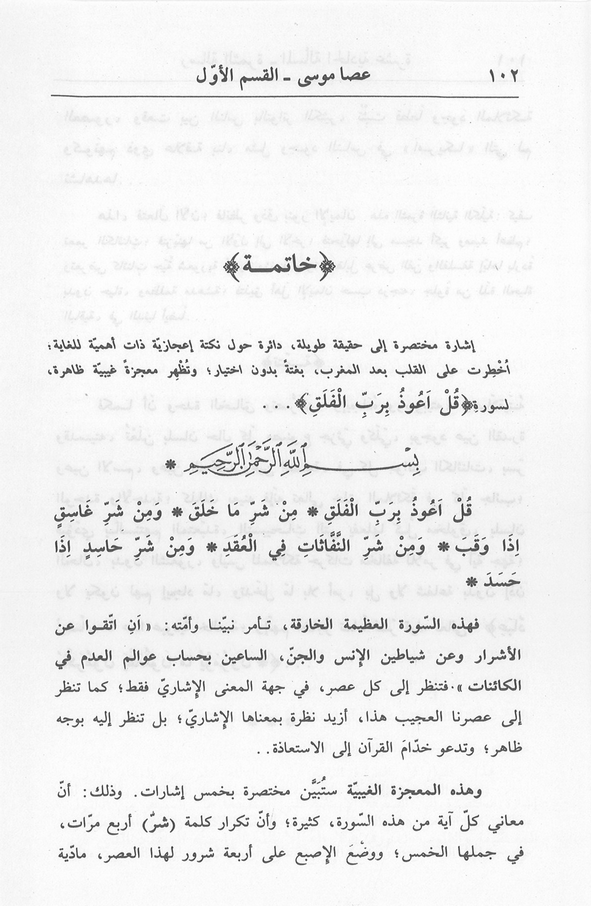 ١٠٢ عصا موسى - القسم الأوّل
﴿خاتمـــة﴾
إشارة مختصرة إلى حقيقة طويلة، دائرة حول نكتة إعجازيّة ذات أهميّة للغاية؛
اُخْطِرت على القلب بعد المغرب، بغتةً بدون اختيار؛ وتُظْهِر معجزةً غيبيّة ظاهرة،
لسورة﴿قُلْ اَعُوذُ بِرَبِّ الْفَلَقِ﴾...
بِسْمِ اللهِ الرَّحْمٰنِ الرَّحِيمِ *
قُلْ اَعُوذُ بِرَبِّ الْفَلَقِ * مِنْ شَرِّ مَا خَلَقَ * وَمِنْ شَرِّ غَاسِقٍ
اِذَا وَقَبَ * وَمِنْ شَرِّ النَّفَّاثَاتِ فِي الْعُقَدِ * وَمِنْ شَرِّ حَاسِدٍ اِذَا
حَسَدَ *
فهذه السّورة العظيمة الخارقة، تأمر نبيّنا وأمّته: «اَنِ اتّقوا عن
الأشرار وعن شياطين الإنس والجنّ، الساعين بحساب عوالم العدم في
الكائنات».فتنظر إلى كل عصر، في جهة المعنى الإشاريّ فقط؛ كما تنظر
إلى عصرنا العجيب هذا، أزيد نظرة بمعناها الإشاريّ؛ بل تنظر إليه بوجه
ظاهر؛ وتدعو خدّامَ القرآن إلى الاستعاذة..
وهذه المعجزة الغيبيّة ستُبَيَّن مختصرة بخمس إشارات. وذلك: أنّ
معاني كلّ آية من هذه السّورة، كثيرة؛ وأنّ تكرار كلمة (شرّ) أربع مرّات،
في جملها الخمس؛ ووضْعَ الإصبع على أربعة شرور لهذا العصر، مادّية